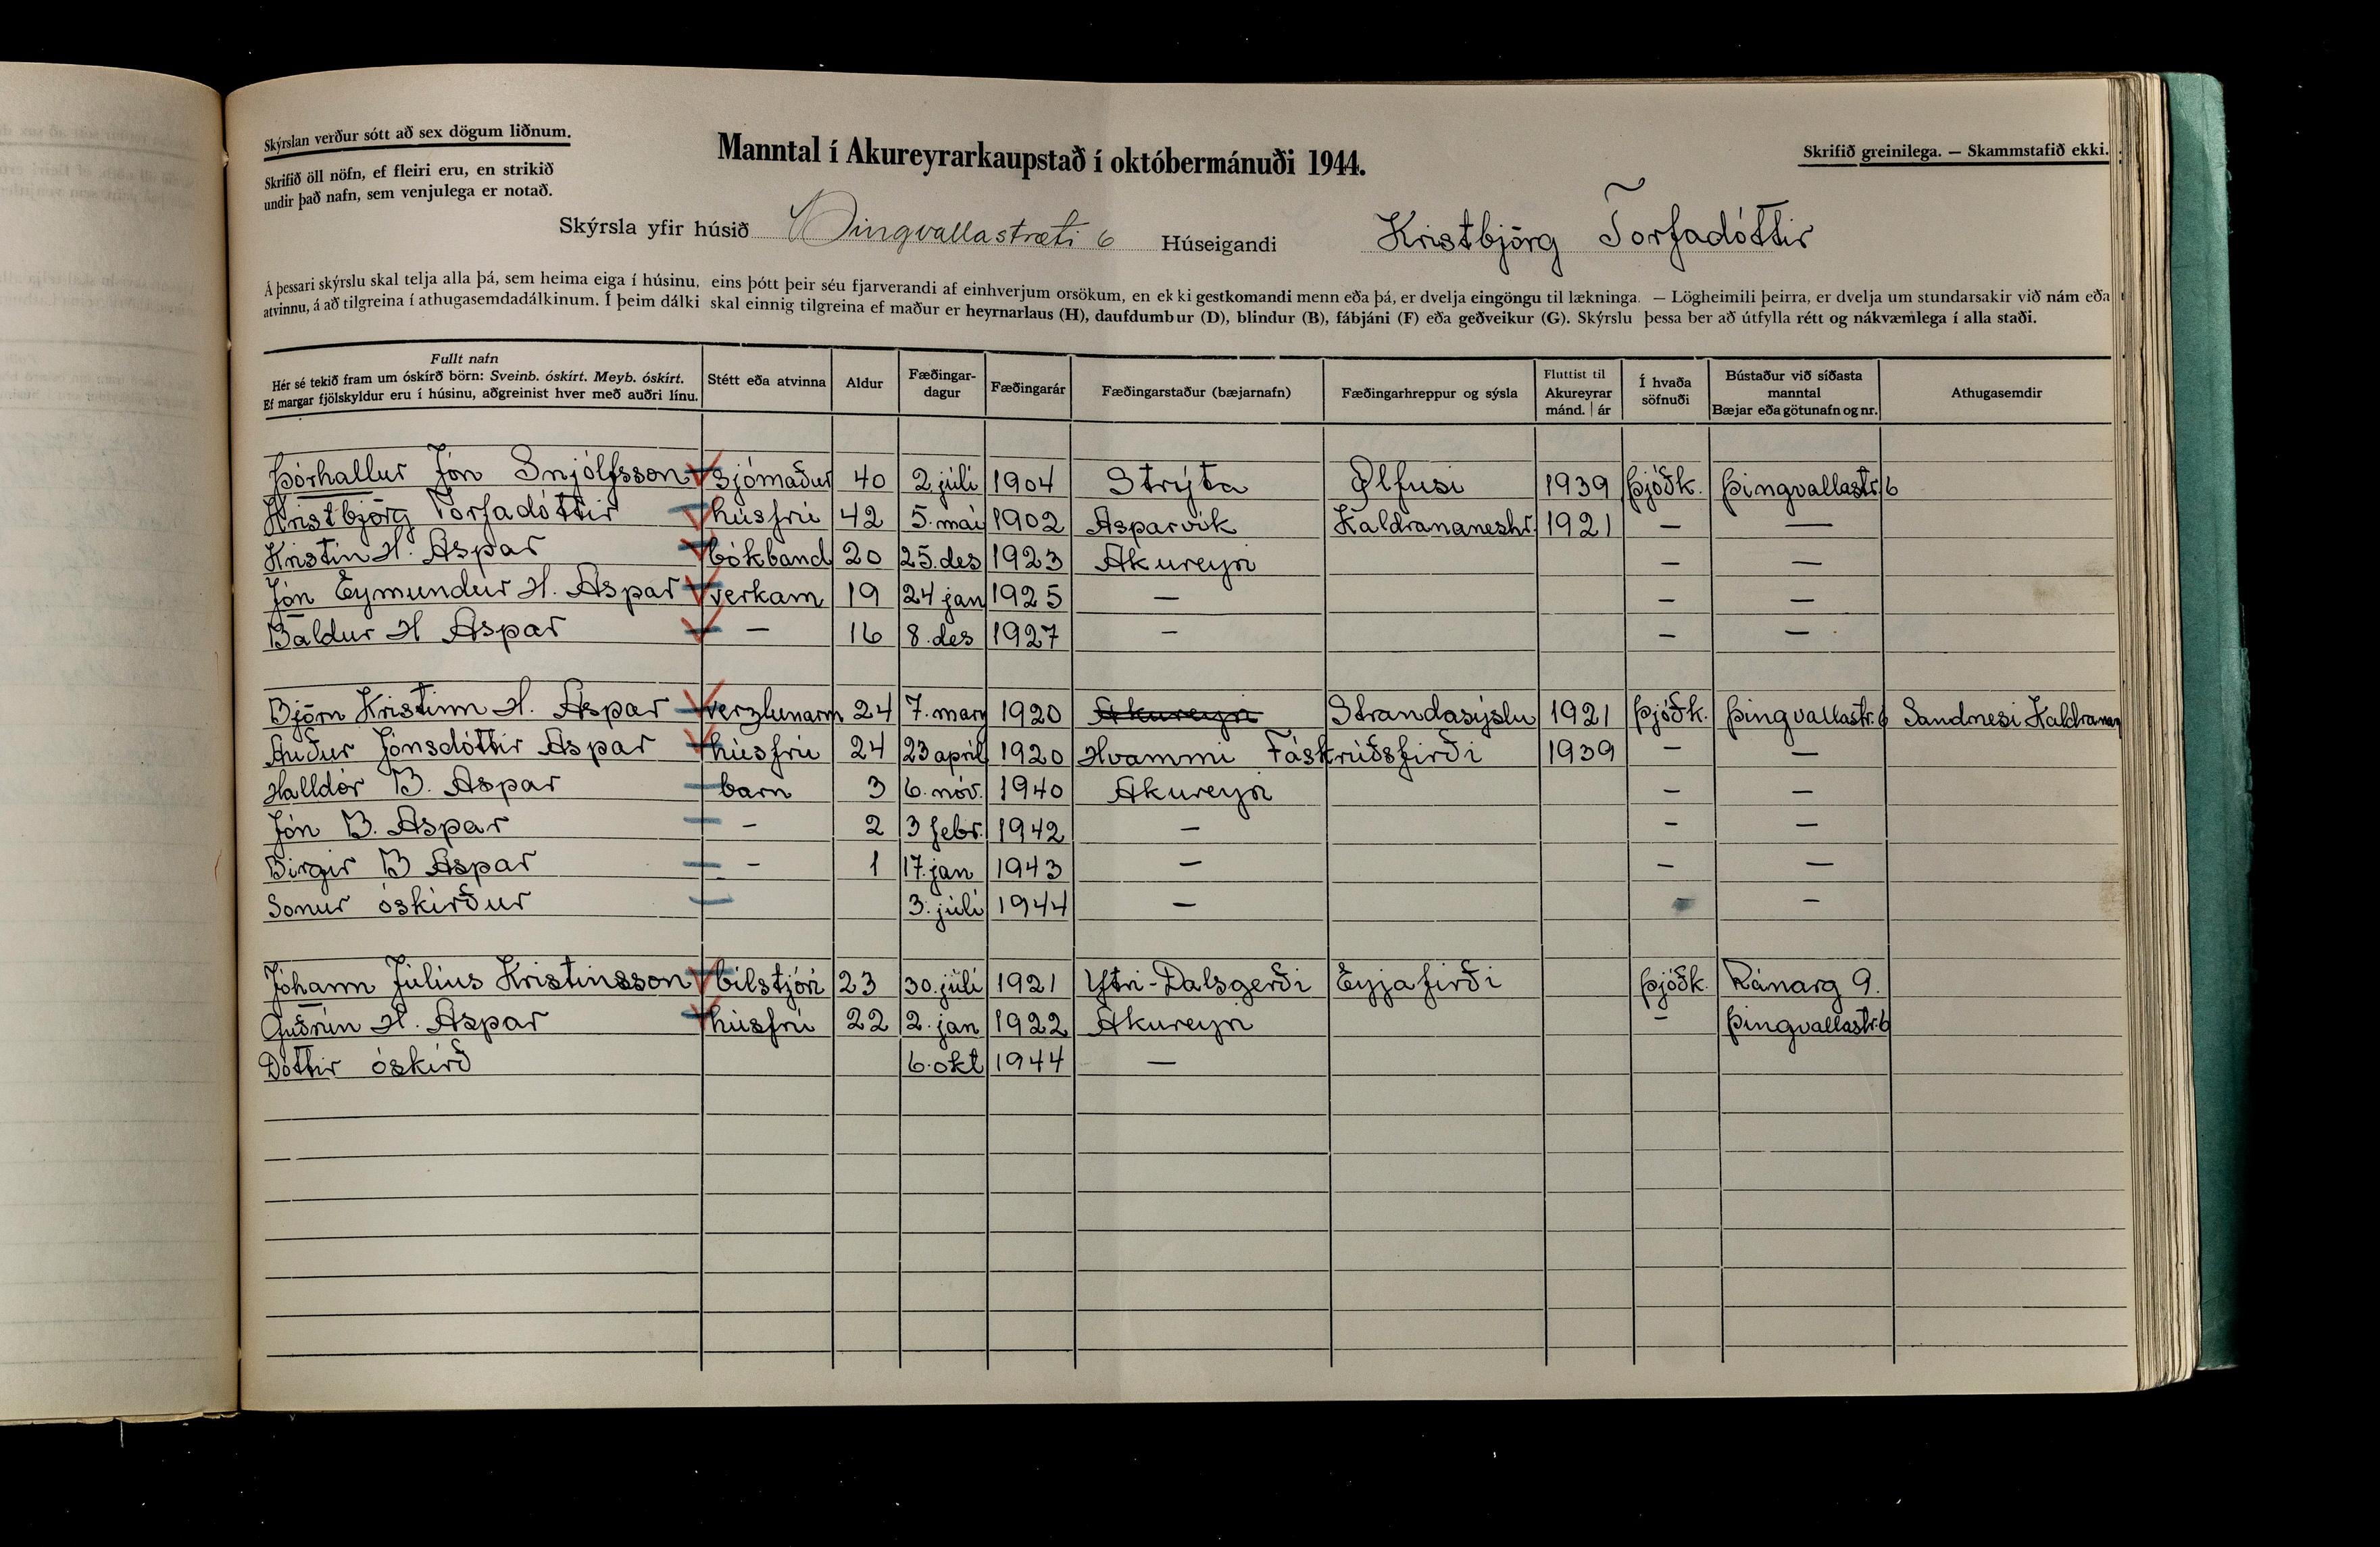 Skýrslan verður sótt að sex dögum liðnum.
Skrifið öll nöfn, ef fleiri eru, en strikið
undir það nafn, sem venjulega er notað.
Manntal í Akureyrarkaupstað í októbermánuði 1944.
Skrifið greinilega. — Skammstafið ekki.
Skýrsla yfir húsið Þingvallastræti 6 Húseigandi Kristbjörg Torfadóttir
Á þessari skýrslu skal telja alla þá, sem heima eiga í húsinu, eins þótt þeir séu fjarverandi af einhverjum orsökum, en ekki gestkomandi menn eða þá, er dvelja eingöngu til lækninga. — Lögheimili þeirra, er dvelja um stundarsakir við nám eða
atvinnu, á að tilgreina í athugasemdadálkinum. Í þeim dálki skal einnig tilgreina ef maður er heyrnarlaus (H), daufdumbur (D), blindur (B), fábjáni (F) eða geðveikur (G). Skýrslu þessa ber að útfylla rétt og nákvæmlega í alla staði.
Fullt nafn
Hér sé tekið fram um óskírð börn: Sveinb. óskírt. Meyb. óskírt.
Ef margar fjölskyldur eru í húsinu, aðgreinist hver með auðri línu.
Stétt eða atvinna
Aldur
Fæðingar-
dagur
Fæðingarár
Fæðingarstaður (bæjarnafn)
Fæðingarhreppur og sýsla
Fluttist til
Akureyrar
mánd. | ár
Í hvaða
söfnuði
Bústaður við síðasta
manntal
Bæjar eða götunafn og nr.
Athugasemdir
Þórhallur Jón Snjólfsson sjómaður 40 2. júlí 1904 Strýta Ölfusi 1939 Þjóðk. Þingvallastr. 6
Kristbjörg Torfadóttir húsfrú 42 5. maí 1902 Asparvík Kaldrananeshr. 1921 — —
Kristín H. Aspar bókband 20 25. des 1923 Akureyri — —
Jón Eymundur H. Aspar verkam 19 24 jan 1925 — — —
Baldur H Aspar — 16 8. des 1927 — — —
Björn Kristinn H. Aspar verzlunarm 24 7. marz 1920 Akureyri Strandasýslu 1921 Þjóðk. Þingvallastr. 6 Sandnesi Kaldranan
Auður Jónsdóttir Aspar húsfrú 24 23 apríl 1920 Hvammi Fáskrúðsfirði 1939 — —
Halldór B. Aspar barn 3 6. nóv. 1940 Akureyri — —
Jón B. Aspar — 2 3 febr. 1942 — — —
Birgir B Aspar — 1 17. jan 1943 — — —
Sonur óskírður 3. júlí 1944 — — —
Jóhann Júlíus Kristinsson bílstjóri 23 30. júlí 1921 Ytri-Dalsgerði Eyjafirði Þjóðk. Ránarg 9.
Guðrún H. Aspar húsfrú 22 2. jan 1922 Akureyri — Þingvallastr. 6
Dóttir óskírð 6. okt 1944 —